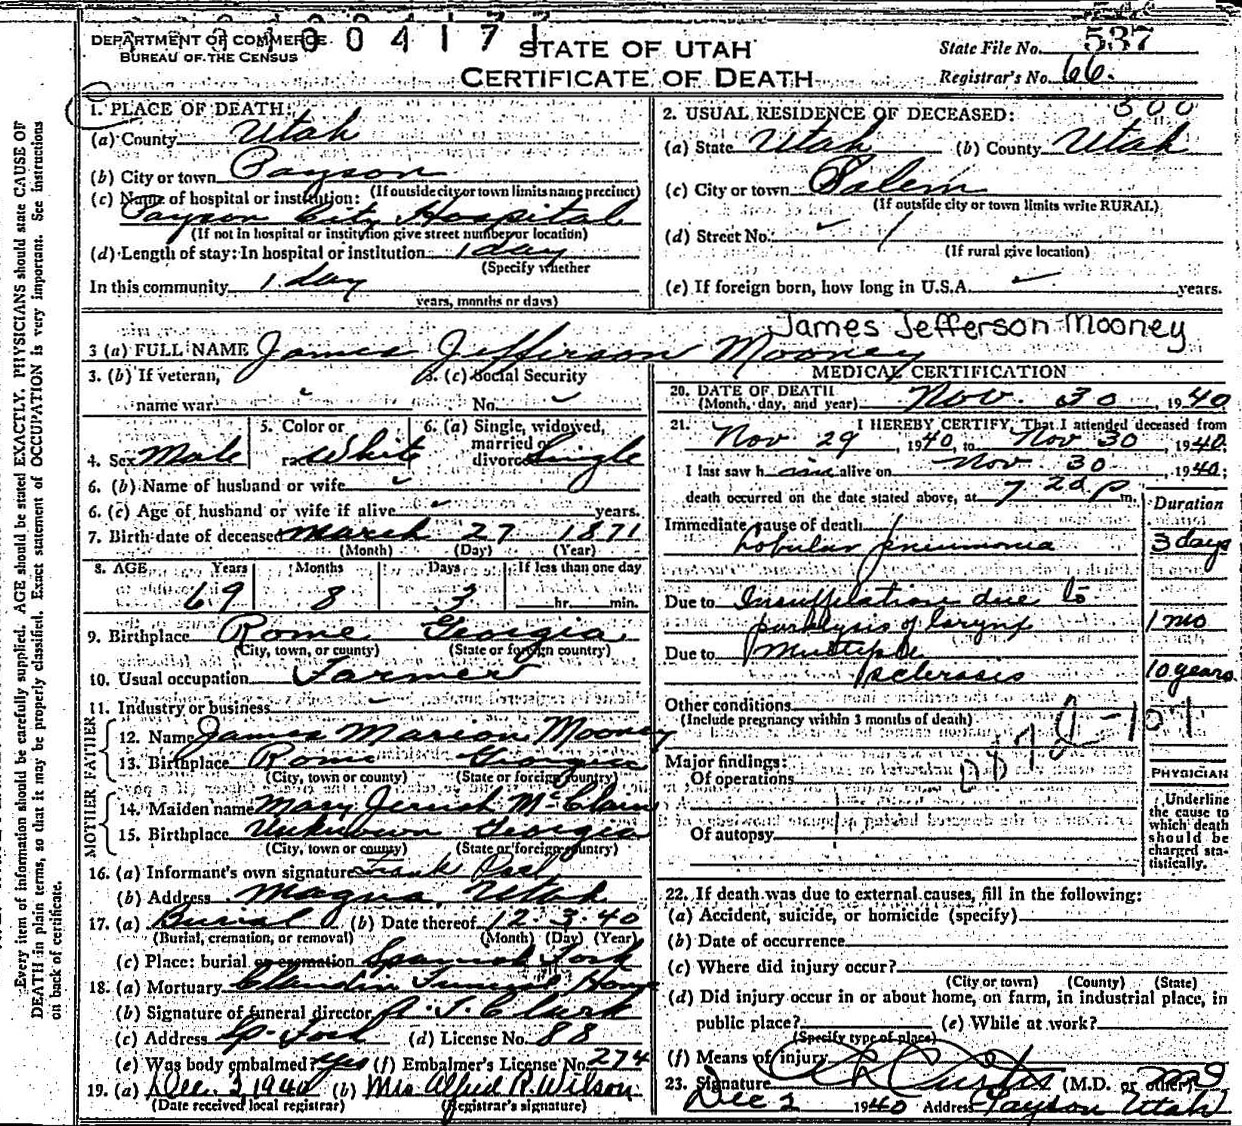 1004171
DEPARTMENT OF COMMERCE
BUREAU OF THE CENSUS
STATE OF UTAH
CERTIFICATE OF DEATH
State File No. 537
Registrar's No. 66.
1. PLACE OF DEATH:
(a) County Utah
(b) City or town Payson
(If outside city or town limits name precinct)
(c) Name of hospital or institution:
Payson City Hospital
(If not in hospital or institution give street number or location)
(d) Length of stay: In hospital or institution 1 day
(Specify whether
In this community 1 day
years, months or days)
500
2. USUAL RESIDENCE OF DECEASED:
(a) State Utah (b) County Utah
(c) City or town Salem
(If outside city or town limits write RURAL)
(d) Street No.
(If rural give location)
(e) If foreign born, how long in U.S.A. years.
James Jefferson Mooney
3 (a) FULL NAME James Jefferson Mooney
3. (b) If veteran,
name war
3. (c) Social Security
No.
4. Sex Male
5. Color or
race White
6. (a) Single, widowed,
married or
divorced Single
6. (b) Name of husband or wife
6. (c) Age of husband or wife if alive years.
7. Birth date of deceased March 27 1871
(Month) (Day) (Year)
8. AGE Years Months Days If less than one day
69 8 3 hr. min.
9. Birthplace Rome Georgia
(City, town, or county) (State or foreign country)
10. Usual occupation Farmer
11. Industry or business
FATHER
12. Name James Marion Mooney
13. Birthplace Rome Georgia
(City, town or county) (State or foreign country)
MOTHER
14. Maiden name Mary Jerush McClain
15. Birthplace Unknown Georgia
(City, town or county) (State or foreign country)
16. (a) Informant's own signature Frank
(b) Address Magna, Utah
17. (a) Burial (b) Date thereof 12 3 40
(Burial, cremation, or removal) (Month) (Day) (Year)
(c) Place: burial or cremation Spanish Fork
18. (a) Mortuary Claudin Funeral Home
(b) Signature of funeral director A. J. Clark
(c) Address Sp. Fork (d) License No. 88
(e) Was body embalmed? Yes (f) Embalmer's License No. 274
19. (a) Dec. 3, 1940 (b) Mrs Alfred R. Wilson
(Date received local registrar) (Registrar's signature)
MEDICAL CERTIFICATION
20. DATE OF DEATH
(Month, day, and year) Nov. 30, 1940
21. I HEREBY CERTIFY, That I attended deceased from
Nov 29, 1940, to Nov 30 1940;
I last saw him alive on Nov 30, 1940;
death occurred on the date stated above, at 7 20 p m.
Duration
Immediate cause of death
Lobular pneumonia 3 days
Due to Insufflation due to
paralysis of larynx 1 mo
Due to Multiple
sclerosis 10 years
Other conditions
(Include pregnancy within 3 months of death)
Major findings:
Of operations
Of autopsy
PHYSICIAN
Underline
the cause to
which death
should be
charged sta-
tistically.
22. If death was due to external causes, fill in the following:
(a) Accident, suicide, or homicide (specify)
(b) Date of occurrence
(c) Where did injury occur?
(City or town) (County) (State)
(d) Did injury occur in or about home, on farm, in industrial place, in
public place? (e) While at work?
(Specify type of place)
(f) Means of injury
23. Signature Curtis (M.D. or other) MD
Dec 2 1940 Address Payson Utah
Every item of information should be carefully supplied. AGE should be stated EXACTLY. PHYSICIANS should state CAUSE OF
DEATH in plain terms, so that it may be properly classified. Exact statement of OCCUPATION is very important. See instructions
on back of certificate.